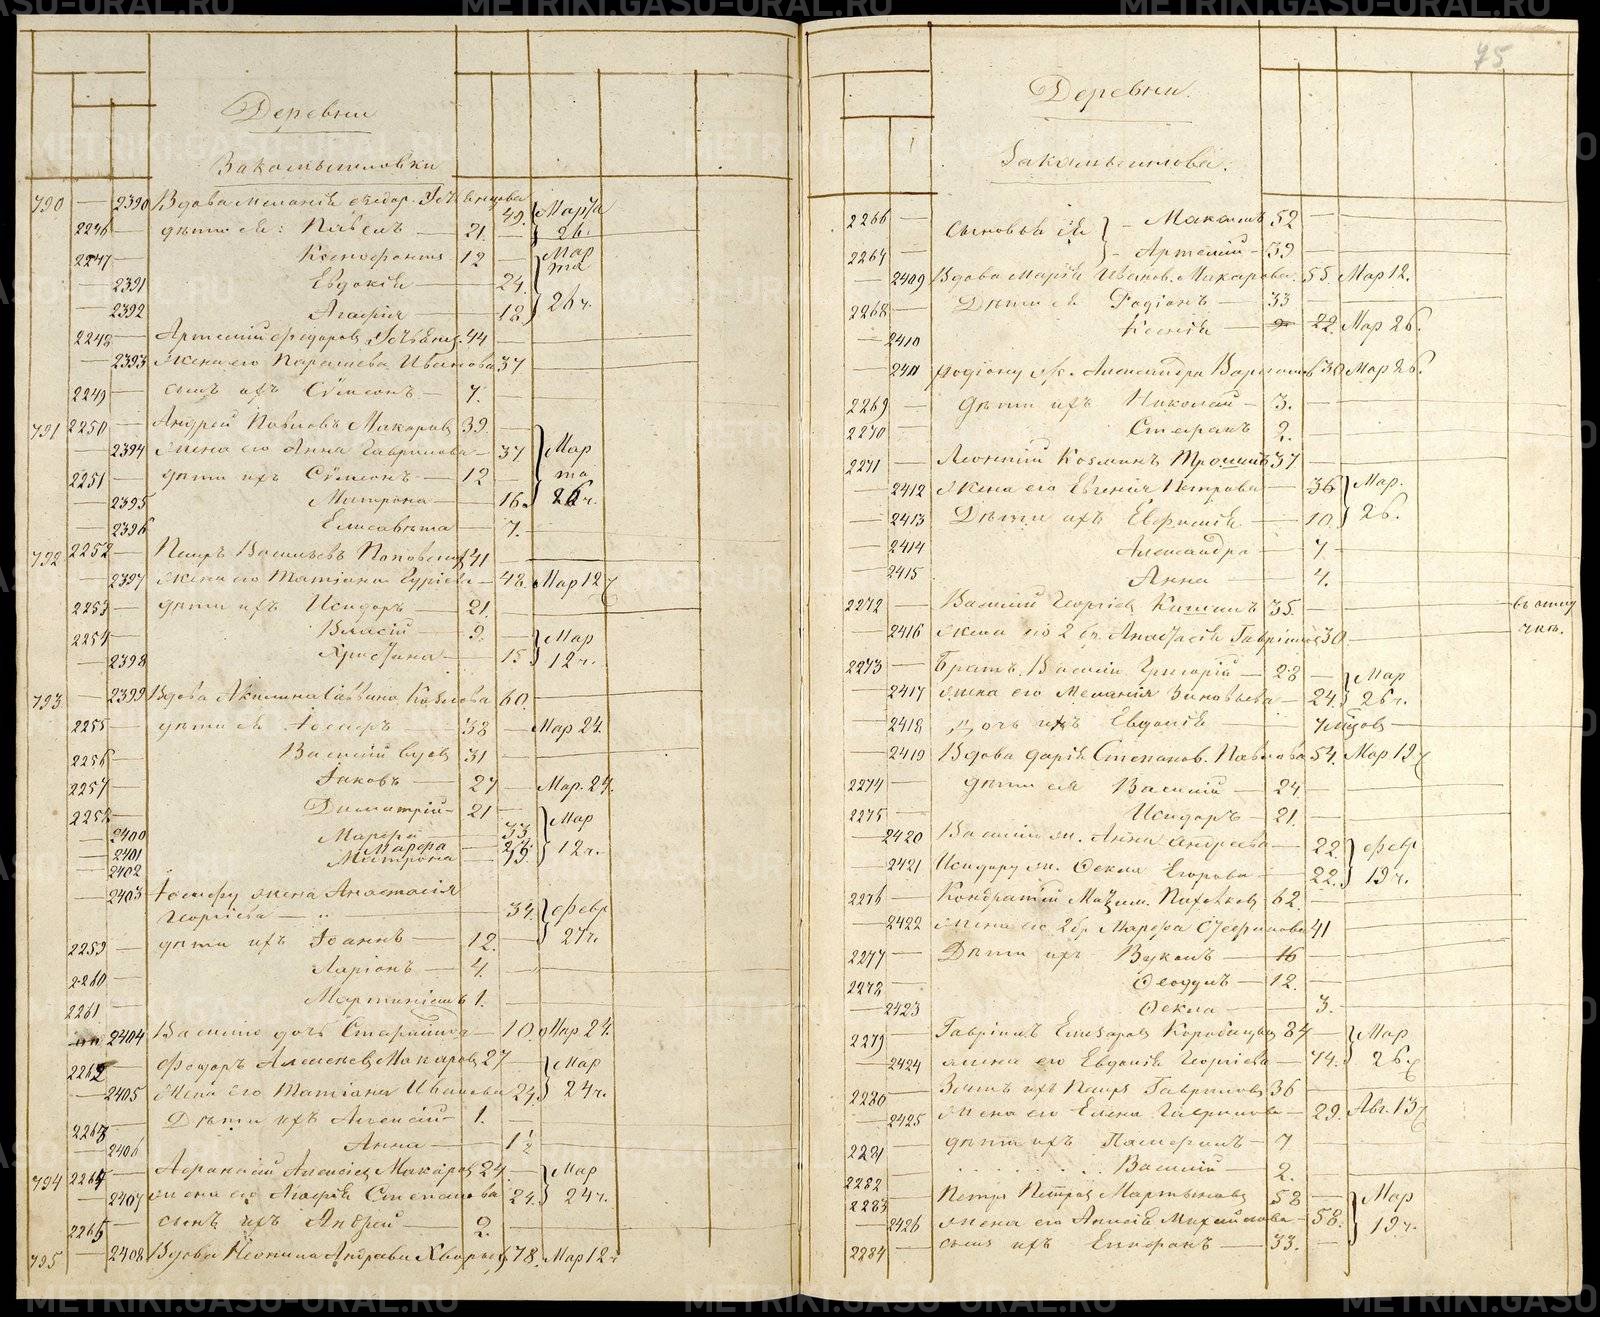 Деревни
Закомысловки
790 — 2390 Вдова Меланія Ѳедор. 49. Марта
2246 — дѣти ея: Павелъ — 21. — 26.
2247 — Ксенофонтъ 12 — Мар
та
— 2391 Евдокія — 24.
— 2392 Агафія — 18. 26 ч.
2248 — Артемій Ѳедоров 44
— 2393 Жена его Парасковья Иванова 37
2249 — сынъ ихъ Сѵмеонъ — 7.
791 2250 — Андрей Павловъ Макаровъ 39.
— 2394 Жена его Анна Гаврилова — 37 Мар
2251 — дѣти ихъ Сѵмеонъ — 12 — та
— 2395 Матрона — 16. 26 ч.
— 2396 Елисавета — 7.
792 2252 — Петръ Васильевъ 41
— 2397 жена его Татіана Гуріева — 48. Мар 12 ч
2253 — дѣти ихъ Исидоръ — 21.
2254 — Власій — 9. — Мар
— 2398 Христина — 15 12 ч.
793 — 2399 Вдова Акилина Саввина Козлова 60.
2255 — дѣти ея Іосифъ — 38 — Мар 24.
2256 — Василій вдов 31 —
2257 — Іаковъ — 27 — Мар. 24.
2258 — Димитрій — 21 — Мар
— 2400 Марфа — 33
— 2401 Марфа
— 2402 Матрона — 19. 12 ч.
— 2403 Іосифу жена Анастасія
Георгіева — " — 34. Февр
2259 — дѣти ихъ Іоаннъ — 12. — 27 ч.
2260 — Ларіонъ — 4. —
2261 — 1. —
2404 Василію дочь 10. Мар 24.
2262 — Ѳедоръ Алексѣевъ Макаровъ 27 — Мар
— 2405 Жена его Татіана Иванова 24. 24 ч.
2263 — Дѣти ихъ Алексій — 1.
— 2406 Анна — 1½
794 2264 — Афанасій Алексіевъ Макаровъ 24. — Мар
— 2407 жена его Агафія Степанова 24. 24 ч.
2265 — сынъ ихъ Андрей — 2.
795 — 2408 Вдова 78. Мар 12 ч
75
Деревни.
Закомыслова.
2266 — Сыновья ея Максимъ 52 —
2267 — Артемій — 39 —
— 2409 Вдова Марія Иванов. Макарова. 55 Мар 12.
2268 — Дѣти ея Родіонъ — 33
— 2410 Ксенія — 22. Мар 26.
— 2411 Родіону ж. Александра 30 Мар 26.
2269 — Дѣти ихъ Николай — 3.
2270 — Стефанъ 2.
2271 — Леонтій Козминъ 37 —
— 2412 Жена его Евгенія Петрова — 36 Мар.
— 2413 Дѣти ихъ Евфимія — 10. 26.
— 2414 Александра — 7
— 2415 Анна — 4.
2272 — Василій Георгіев 35. — въ отлу
— 2416 жена его 2 бр. Анастасія 30. чкѣ.
2273 — Братъ Василія Григорій — 28 — Мар
— 2417 жена его Меланія Зиновьева — 24. 26 ч.
— 2418 Дочь ихъ Евдокія —
— 2419 Вдова Дарія Степанов. Павлова 54. Мар 19 ч
2274 — дѣти ея Василій — 24 —
2275 — Исидоръ — 21.
— 2420 Василій ж. Анна Андреева — 22. Февр
— 2421 Исидору ж. Ѳекла Егорова — 22. 19 ч.
2276 — Кондратій Максим. 62.
— 2422 Жена его 2 бр. Марфа 41
2277 — Дѣти ихъ Вуколъ — 16 —
2278 — Ѳеодулъ — 12. —
— 2423 Ѳекла — 3.
2279 — Гавріилъ 84 — Мар
— 2424 жена его Евдокія Георгіева — 74. 26 ч
2280 — Зять ихъ Петръ Гаврилов 36
— 2425 Жена его Елена Гаврилова — 29. Авг. 15 ч
2281 — дѣти ихъ 7
2282 — . . . . . . . . . Василій — 2.
2283 — Петръ Петров Мартыновъ 58 — Мар
— 2426 жена его Анисія Михайлова — 58. 19 ч.
2284 — сынъ ихъ Епифанъ — 33. —